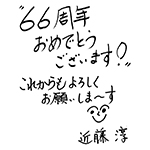 "66周年
おめでとう
ございます!"
これからもよろしく
お願いしま〜す
近藤 淳